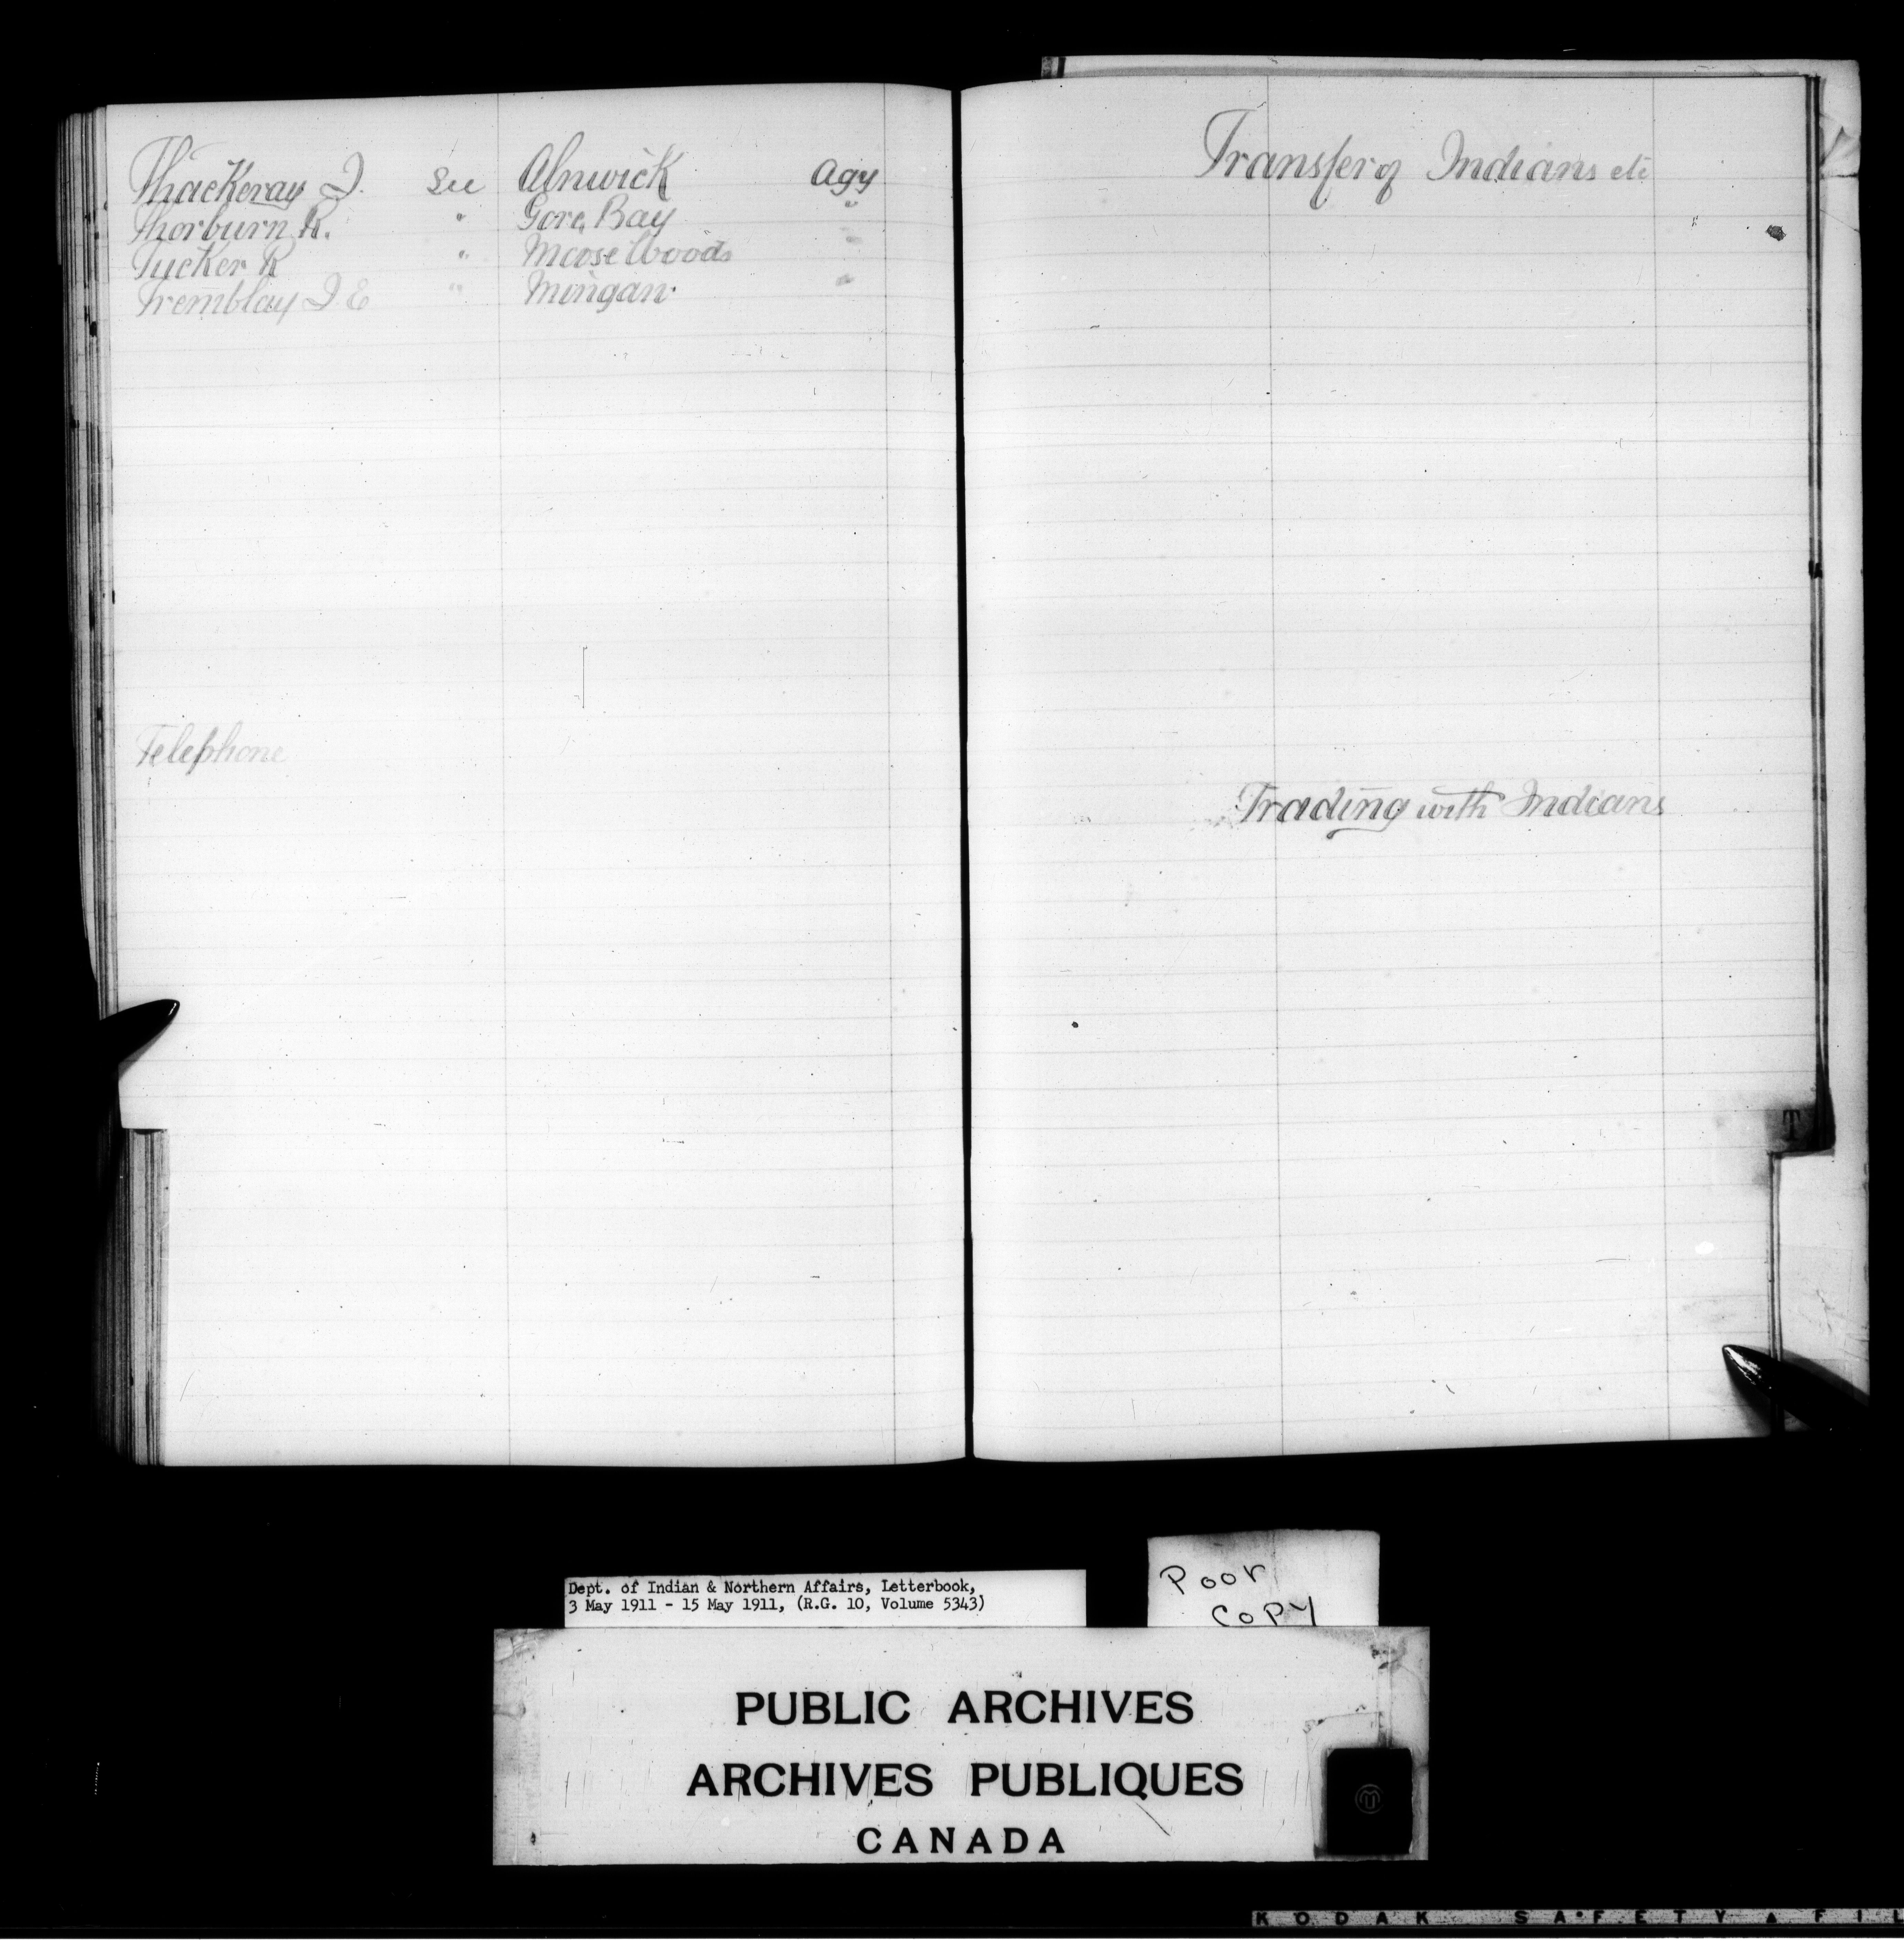 Thackeray J. See Alnwick Agy
Thorburn R. " Gore Bay "
Tucker R " Moose Woods "
Tremblay J E " Mingan "
Telephone
Transfer of Indians etc
Trading with Indians
T
Dept. of Indian & Northern Affairs, Letterbook,
3 May 1911 - 15 May 1911, (R.G. 10, Volume 5343)
Poor
Copy
PUBLIC ARCHIVES
ARCHIVES PUBLIQUES
CANADA
KODAK SAFETY ▲ FIL